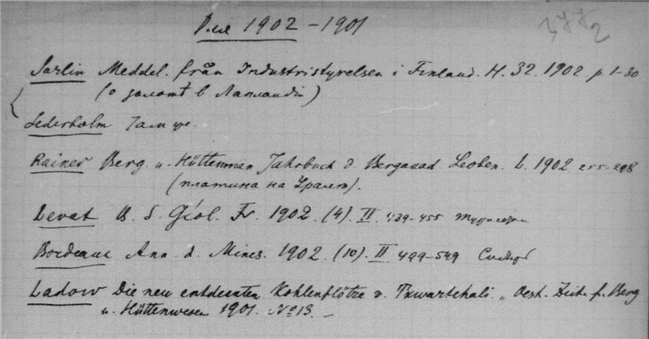 1902-1901
Sarlin Meddel. från Industristyrelsen i Finland. H. 32. 1902 p 1-30
(о золотѣ в Лапландіи)
Sederholm Там же.
Rainer Berg. u. Hüttenmän Jahrbuch d Bergakad Leoben. L. 1902 298
(платина на Уралѣ).
Levat B. S. Géol. Fr. 1902. (4). II 439-455
Bordeaux Ann. d. Mines. 1902. (10). II 499-549 Сибирь
Ladow Die neu entdeckten Kohlenflötze v. Tkwartscheli. Oest. Zeit. f. Berg
u. Hüttenwesen 1901. No 13.